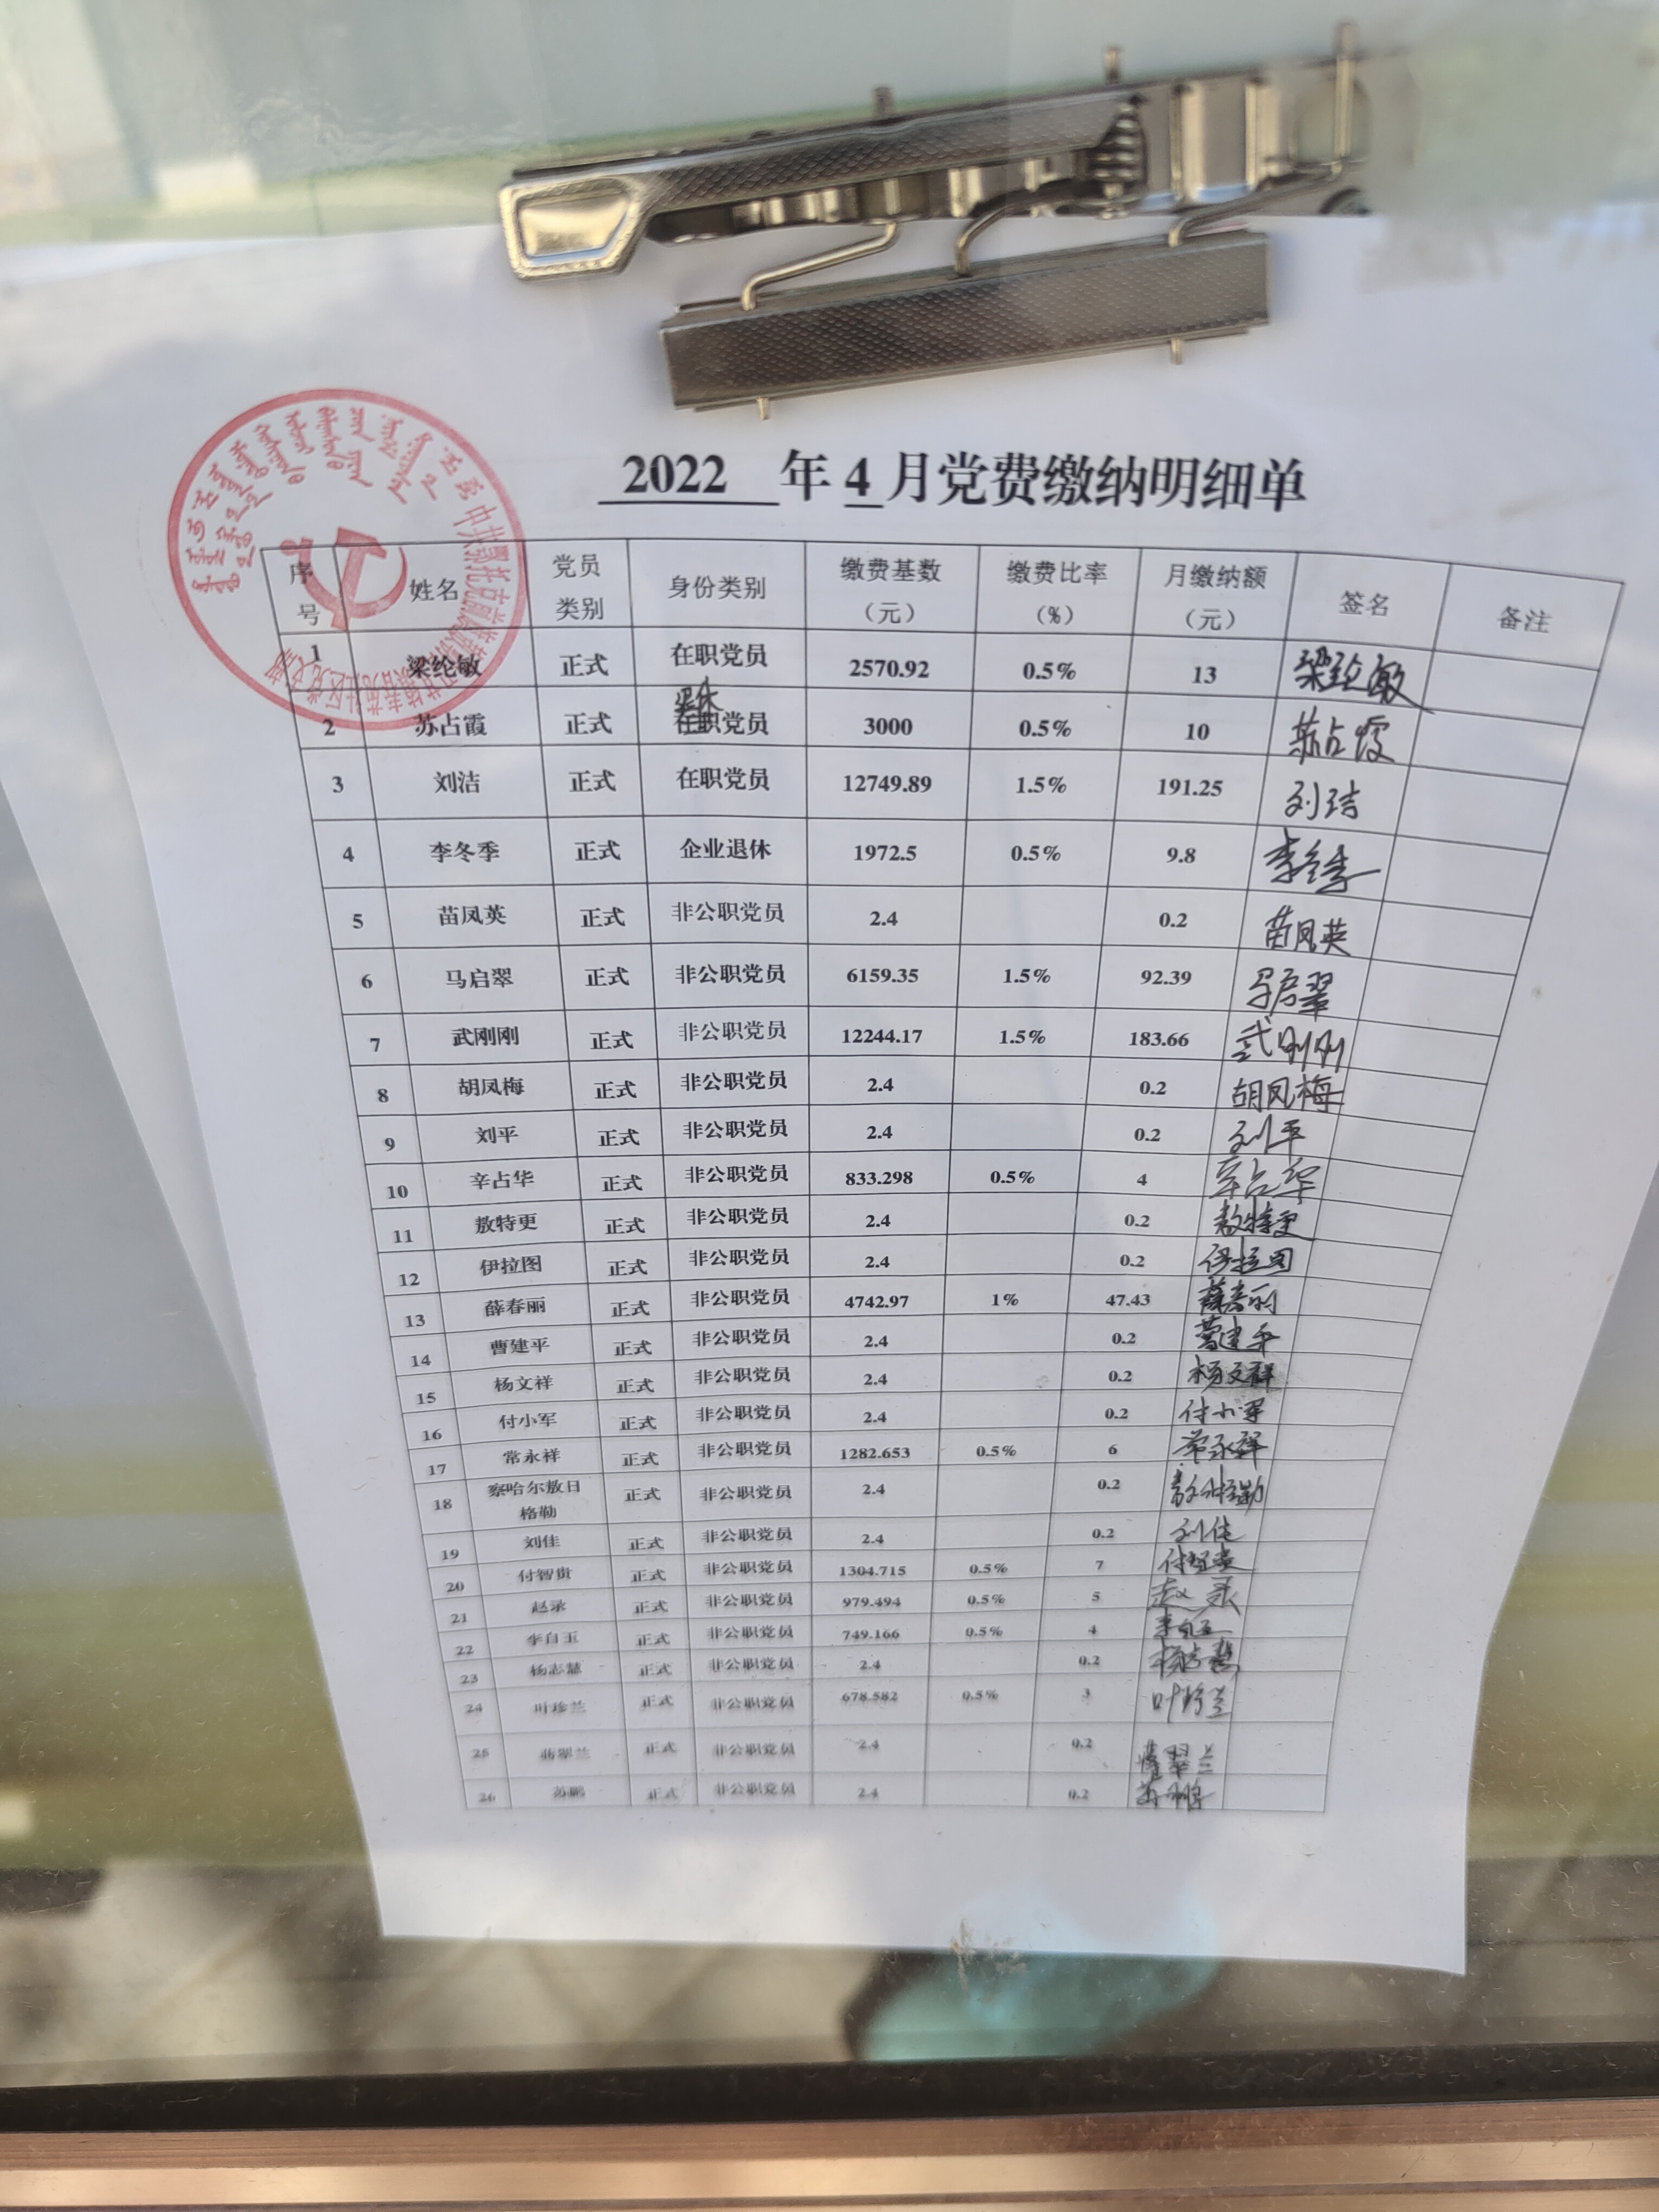 2022 年 4 月党费缴纳明细单
序号 姓名 党员类别 身份类别 缴费基数（元） 缴费比率（%） 月缴纳额（元） 签名 备注
1 梁纶敏 正式 在职党员 2570.92 0.5% 13 梁纶敏
2 苏占霞 正式 在职党员 3000 0.5% 10 苏占霞
3 刘洁 正式 在职党员 12749.89 1.5% 191.25 刘洁
4 李冬季 正式 企业退休 1972.5 0.5% 9.8 李冬季
5 苗凤英 正式 非公职党员 2.4 0.2 苗凤英
6 马启翠 正式 非公职党员 6159.35 1.5% 92.39 马启翠
7 武刚刚 正式 非公职党员 12244.17 1.5% 183.66 武刚刚
8 胡凤梅 正式 非公职党员 2.4 0.2 胡凤梅
9 刘平 正式 非公职党员 2.4 0.2 刘平
10 辛占华 正式 非公职党员 833.298 0.5% 4 辛占华
11 敖特更 正式 非公职党员 2.4 0.2 敖特更
12 伊拉图 正式 非公职党员 2.4 0.2 伊拉图
13 薛春丽 正式 非公职党员 4742.97 1% 47.43 薛春丽
14 曹建平 正式 非公职党员 2.4 0.2 曹建平
15 杨文祥 正式 非公职党员 2.4 0.2 杨文祥
16 付小军 正式 非公职党员 2.4 0.2 付小军
17 常永祥 正式 非公职党员 1282.653 0.5% 6 常永祥
18 察哈尔敖日格勒 正式 非公职党员 2.4 0.2
19 刘佳 正式 非公职党员 2.4 0.2 刘佳
20 付智贵 正式 非公职党员 1304.715 0.5% 7
21 赵录 正式 非公职党员 979.494 0.5% 5 赵录
22 李自玉 正式 非公职党员 749.166 0.5% 4 李自玉
23 杨志慧 正式 非公职党员 2.4 0.2 杨志慧
24 叶珍兰 正式 非公职党员 678.582 0.5% 3 叶珍兰
25 翠兰 正式 非公职党员 2.4 0.2 翠兰
26 苏鹏 正式 非公职党员 2.4 0.2 苏鹏